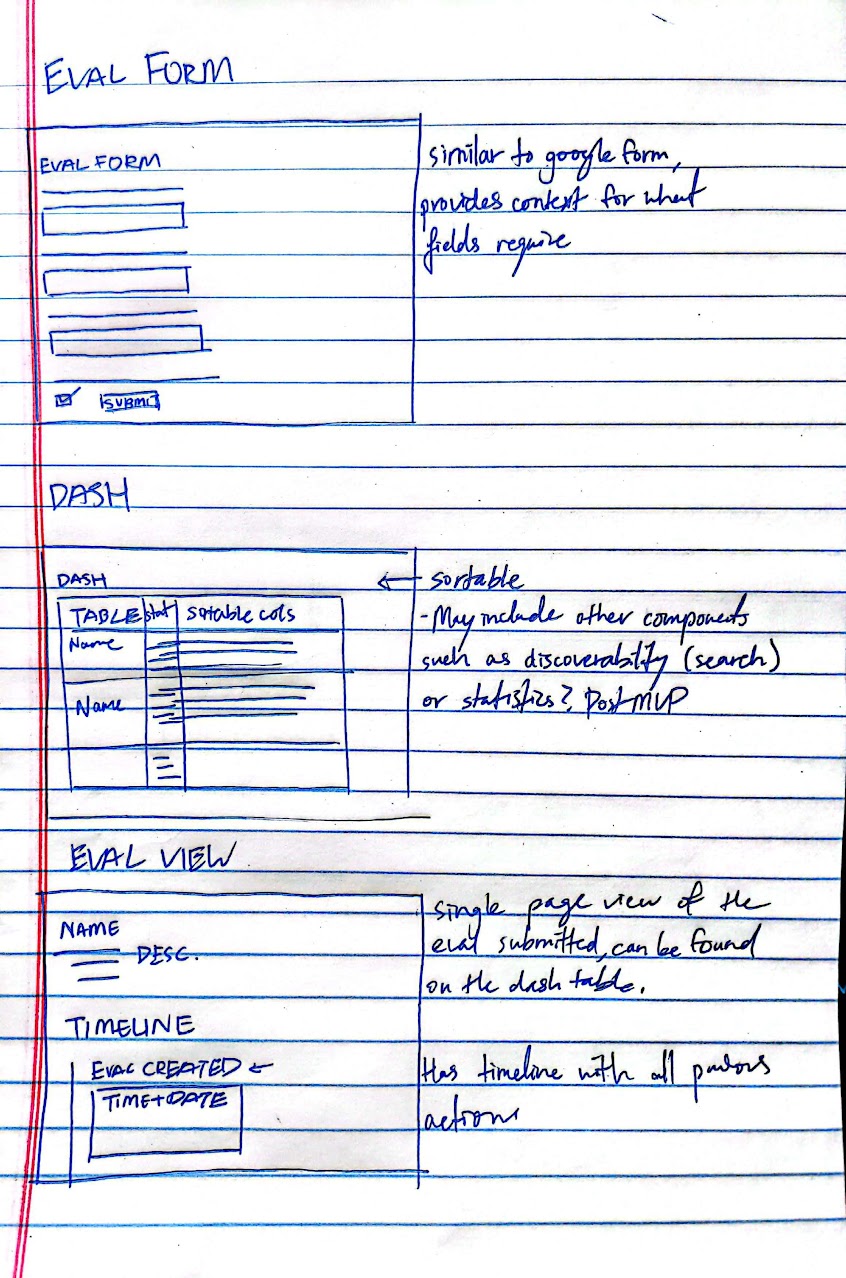 EVAL FORM
EVAL FORM
SUBMIT
similar to google form,
provides context for what
fields require
DASH
DASH
TABLE stat sortable cols
Name
Name
← sortable
- May include other components
such as discoverability (search)
or statistics? Post MVP
EVAL VIEW
NAME
DESC.
TIMELINE
EVAL CREATED ←
TIME+DATE
single page view of the
eval submitted, can be found
on the dash table.
Has timeline with all
actions